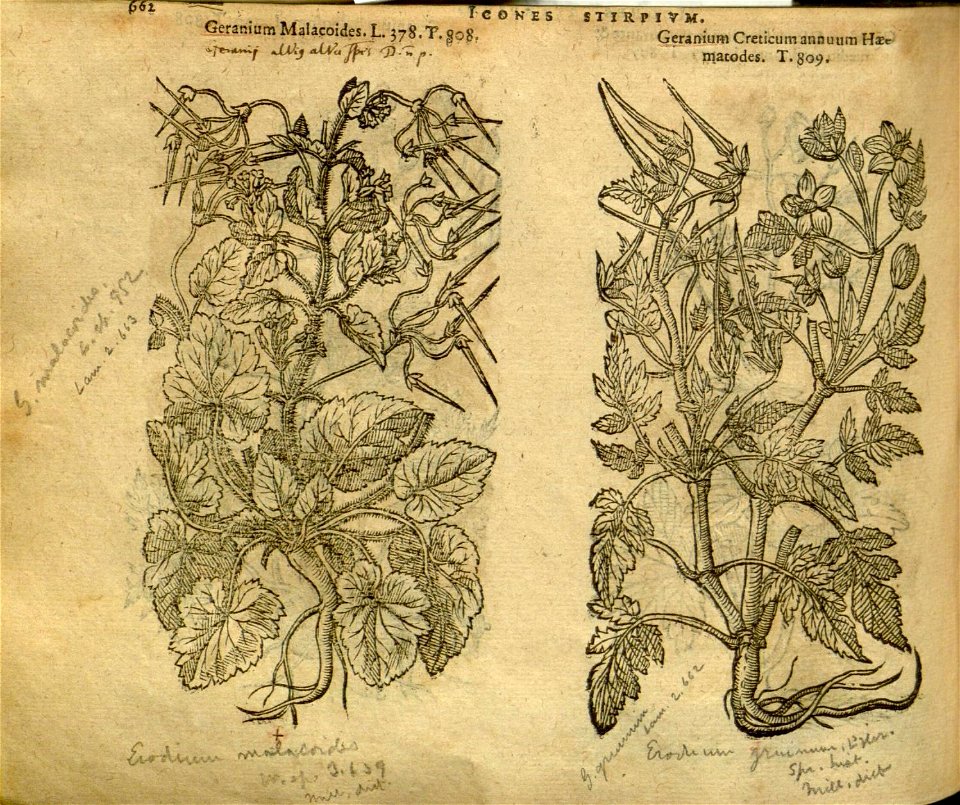 662
ICONES STIRPIVM.
Geranium Malacoides. L. 378. T. 808.
Geranium Creticum annuum Hæ-
matodes. T. 809.
G. malacoides.
952
Lam. 2. 663
Erodium malacoides
W. sp. 3. 639
Mill. dict.
G. gruinum
Lam. 2. 662
Erodium gruinum,
Spr. hist.
Mill. dict.